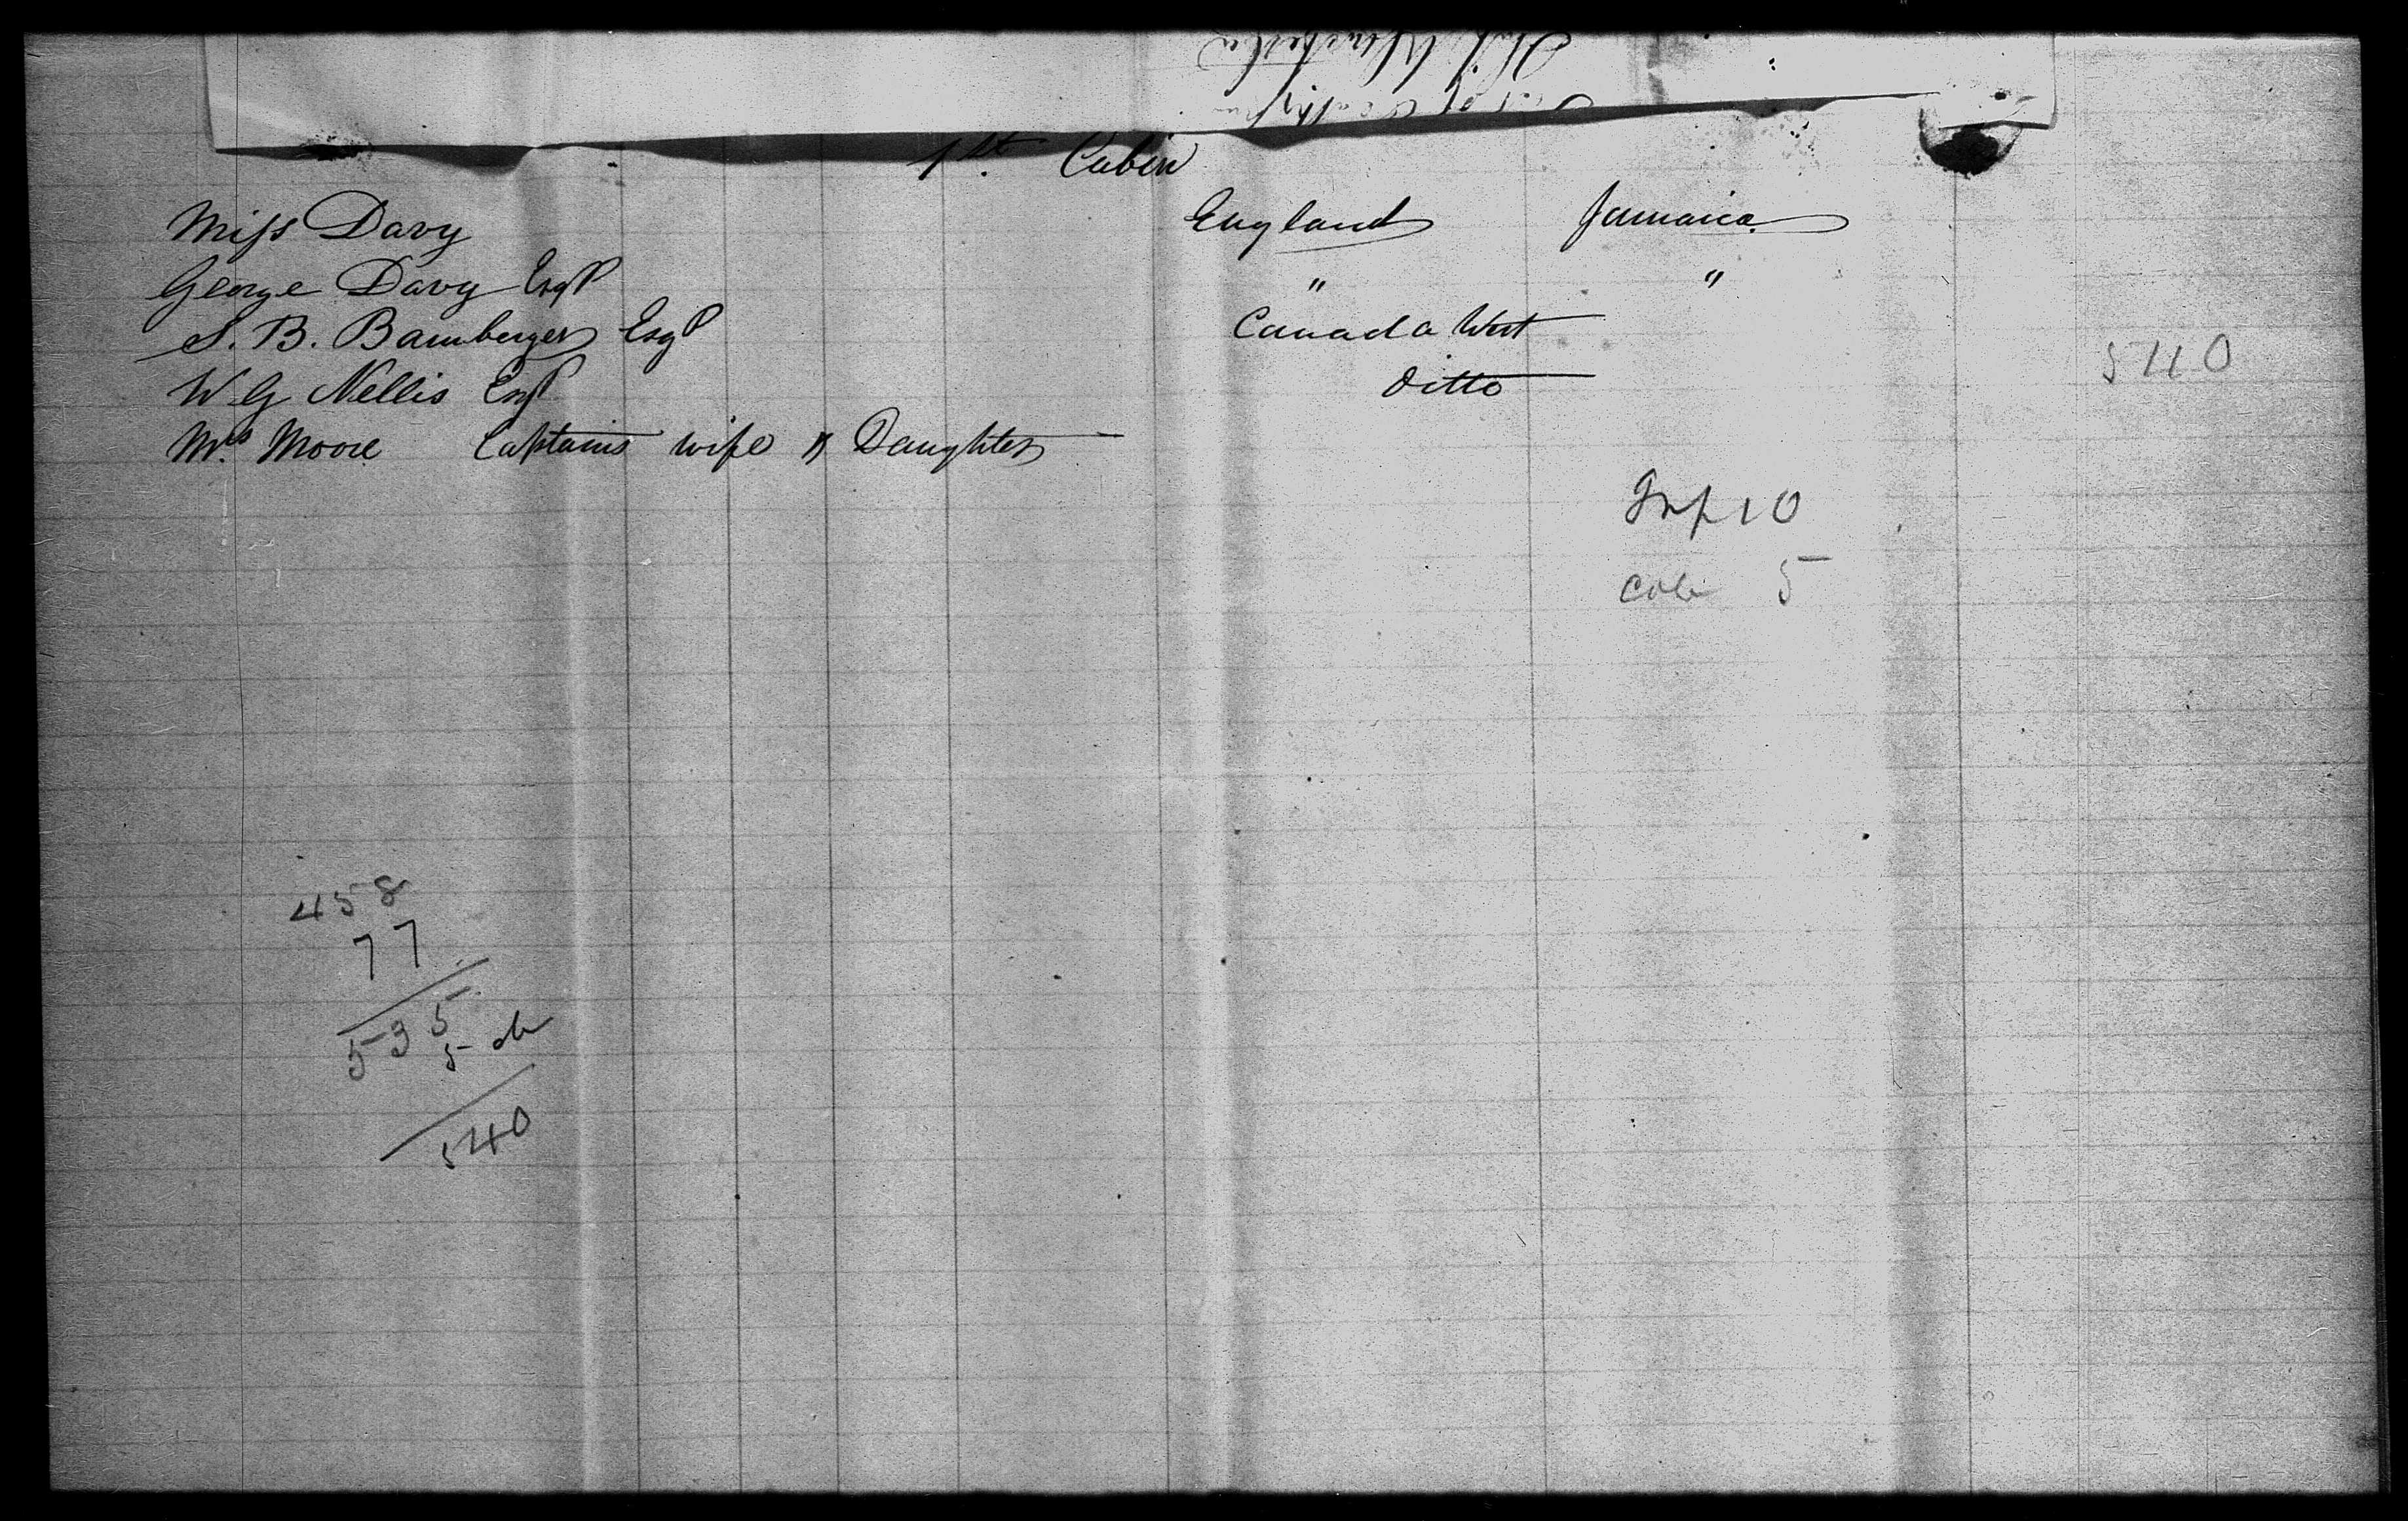 1st. Cabin
Miss Davy England Jamaica
George Davy Esqr " "
S. B. Bamberger Esqr Canada West
W G Nellis Esqr Ditto
540
Mrs Moore Captains wife & Daughter
Inf 10
Cab 5
458
77
535
5 cb
540